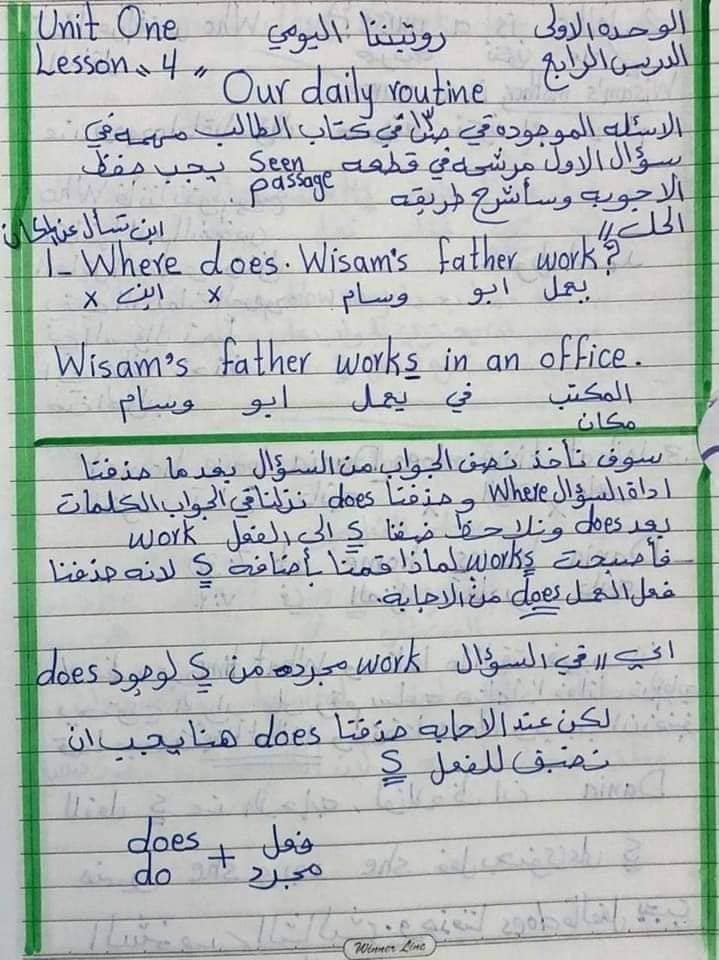 Unit One روتيننا اليومي الوحده الاولى
Lesson « 4 » الدرس الرابع
Our daily routine
الاسئله الموجوده في في كتاب الطالب مهمه في
سؤال الاول مرشحه في قطعه Seen passage يجب حفظ
الاجوبه وسأشرح طريقه
الحل //
اين تسأل عن المكان
1- Where does Wisam's father work?
x اين x وسام ابو يعمل
Wisam's father works in an office.
وسام ابو يعمل في المكتب
مكان
سوف نأخذ نصف الجواب من السؤال بعد ما حذفنا
اداة السؤال Where وحذفنا does نزلنا في الجواب الكلمات
بعد does ونلاحظ ضفنا S الى الفعل work
فأصبحت works لماذا قمنا بأضافة S لانه حذفنا
فعل العمل does من الاجابة.
اني // في السؤال work مجرده من S لوجود does
لكن عند الاجابة حذفنا does هنا يجب ان
نضيف للفعل S
does
do + فعل
مجرد
Winner Line